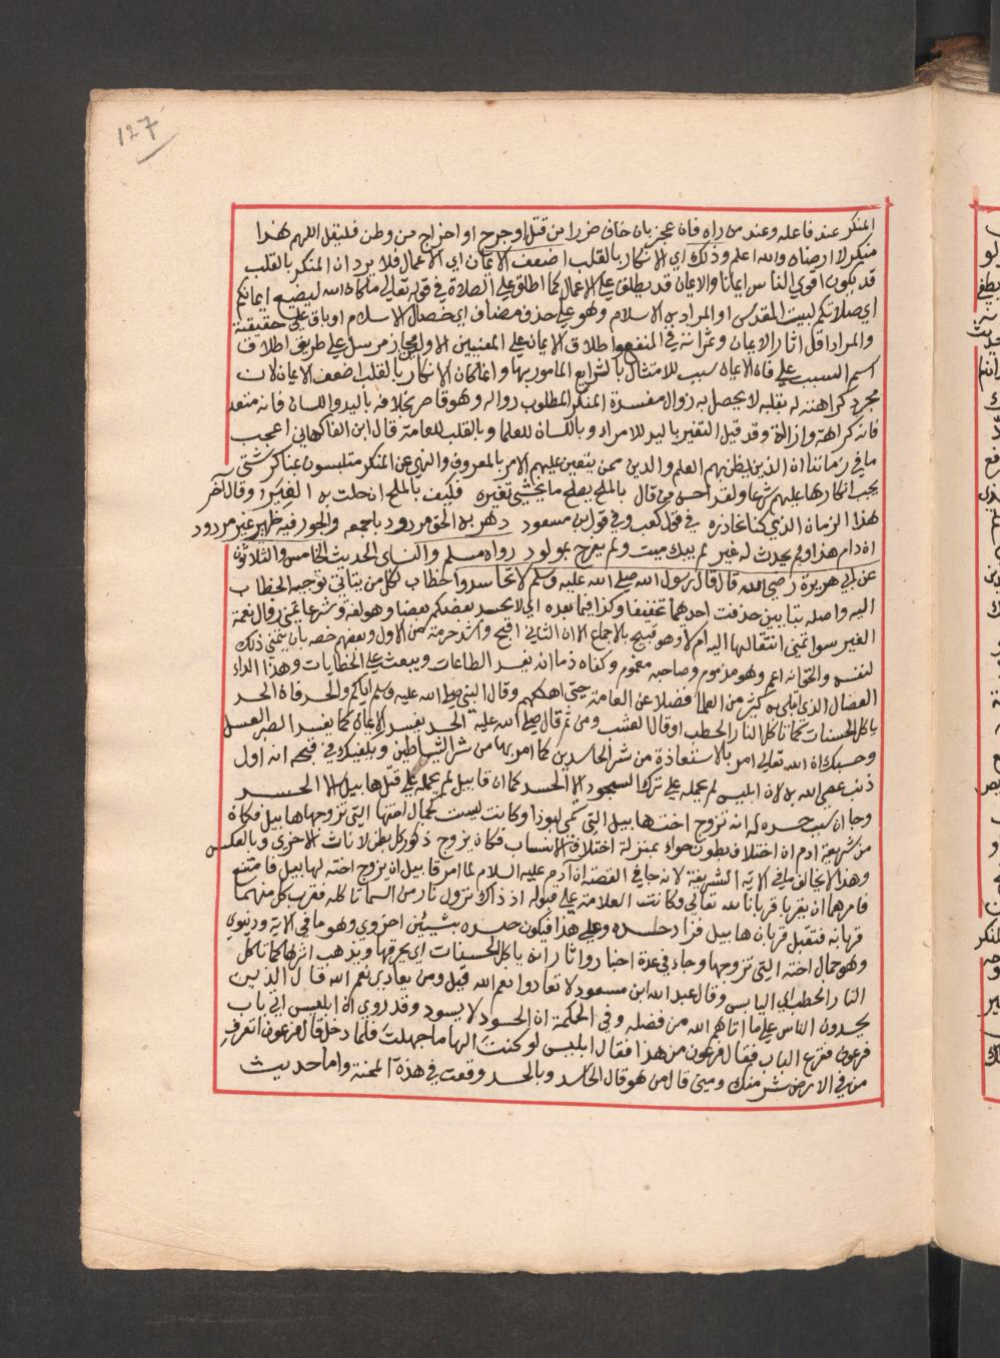 127
المنكر عند فاعله وعند من راه فان عجز بان خاف ضررا من قتل او جرح او اخراج من وطن فليقل اللهم هذا
منكر لا ارضاه والله اعلم وذلك اي الانكار بالقلب اضعف الايمان اي الاعمال فلا يرد ان المنكر بالقلب
قد يكون اقوي الناس ايمانا والايمان قد يطلق علي الاعمال كما اطلق علي الصلاة في قوله تعالي ما كان الله ليضيع ايمانكم
اي صلاتكم لبيت المقدس او المراد به الاسلام وهو علي حذف مضاف اي خصال الاسلام او باق علي حقيقته
والمراد اقل اثار الايمان وثمراته في المنفعه واطلاق الايمان علي المعنيين الاولين مجاز مرسل علي طريق اطلاق
اسم السبب علي فان الايمان سبب للامتثال بالشرايع المامور بها وانما كان الانكار بالقلب اضعف الايمان لان
مجرد كراهته له بقلبه لا يحصل به زوال مفسدة المنكر المطلوب زواله وهو قاصر بخلافه باليد واللسان فانه متعد
فانه كراهة وازالة وقد قيل التغيير باليد للامراء وباللسان للعلما وبالقلب للعامة قال ابن الفاكهاني اعجب
ما في زماننا ان الذين يظن بهم العلم والدين ممن يتعين عليهم الامر بالمعروف والنهي عن المنكر متلبسون بمناكر شتي
يجب انكارها عليهم شرعا ولقد احسن من قال بالملح يصلح ما يخشي تغيره فكيف بالملح ان حلت به الغير وقال آخر
هذا الزمان الذي كنا نحاذره في قول كعب وفي قول ابن مسعود دهر به الحق مردود باجمعه والجور فيه ظهير غير مردود
ان دام هذا ولم يحدث له غير لم يبك ميت ولم يفرح بمولود رواه مسلم والنساي الحديث الخامس والثلاثون
عن ابي هريرة رضي الله قال قال رسول الله صلي الله عليه وسلم لا تحاسدوا الخطاب لكل من يتاتي توجيه الخطاب
اليه واصله بتايين حذفت احديهما تخفيفا وكذا فيما بعده اي لا يحسد بعضكم بعضا وهو لغة وشرعا تمني زوال نعمة
الغير سوا تمني انتقالها اليه ام لا وهو قبيح بالاجماع الا ان الثاني اقبح واشد حرمة من الاول وبعضهم خصه بان يتمني ذلك
لنفسه والحق انه اعم وهو مذموم وصاحبه مغموم وكفاه ذما انه يفسد الطاعات ويبعث علي الخطايات وهذا الداء
العضال الذي ابتلي به كثير من العلما فضلا عن العامة حتي اهلكهم وقال النبي صلي الله عليه وسلم اياكم والحسد فان الحسد
ياكل الحسنات كما تاكل النار الحطب او قال العشب ومن ثم قال صلي الله عليه الحسد يفسد الايمان كما يفسد الصبر العسل
وحسبك ان الله تعالي امر بالاستعاذة من شر الحاسدين كما امر بها من شر الشياطين ويكفيك في قبحه انه اول
ذنب عصي الله به لان ابليس لم يحمله علي ترك السجود الا الحسد كما ان قابيل لم يحمله علي قتل هابيل الا الحسد
وجا ان سبب حسده له انه تزوج اخت هابيل التي تمي لبوذا وكانت ليست كجمال اختها التي تزوجها هابيل فكان
من شريعة ادم ان اختلاف بطون حواء بمنزلة اختلاف الانساب فكان يزوج ذكور كل بطن لاناث الاخري وبالعكس
وهذا لا يخالف ما في الاية الشريفة لانه جا في القصة ان آدم عليه السلام لما امر قابيل ان يزوج اخته لهابيل فامتنع
فامرهما ان يقربا قربانا لله تعالي وكانت العلامة علي قبوله اذ ذاك نزول نار من السما تاكله فقرب كل منهما
قربانه فتقبل قربان هابيل فزاد حسده وعلي هذا فيكون حسده بشيئين اخروي وهو ما في الاية ودنيوي
وهو جمال اخته التي تزوجها وجاء في عدة اخبار واثار انه ياكل الحسنات اي يحرقها ويذهب اثرها كما تاكل
النار الحطب اي اليابس وقال عبد الله ابن مسعود لا تعادوا نعم الله قيل ومن يعادي نعم الله قال الذين
يحسدون الناس علي ما اتاهم الله من فضله وفي الحكمة ان الحسود لا يسود وقد روي ان ابليس اتي باب
فرعون فقرع الباب فقال فرعون من هذا فقال ابليس لو كنت الها ما جهلت فلما دخل قال فرعون اتعرف
من في الارض شر منك ومني قال من هو قال الحاسد وبالحسد وقعت في هذه المحنة واما حديث